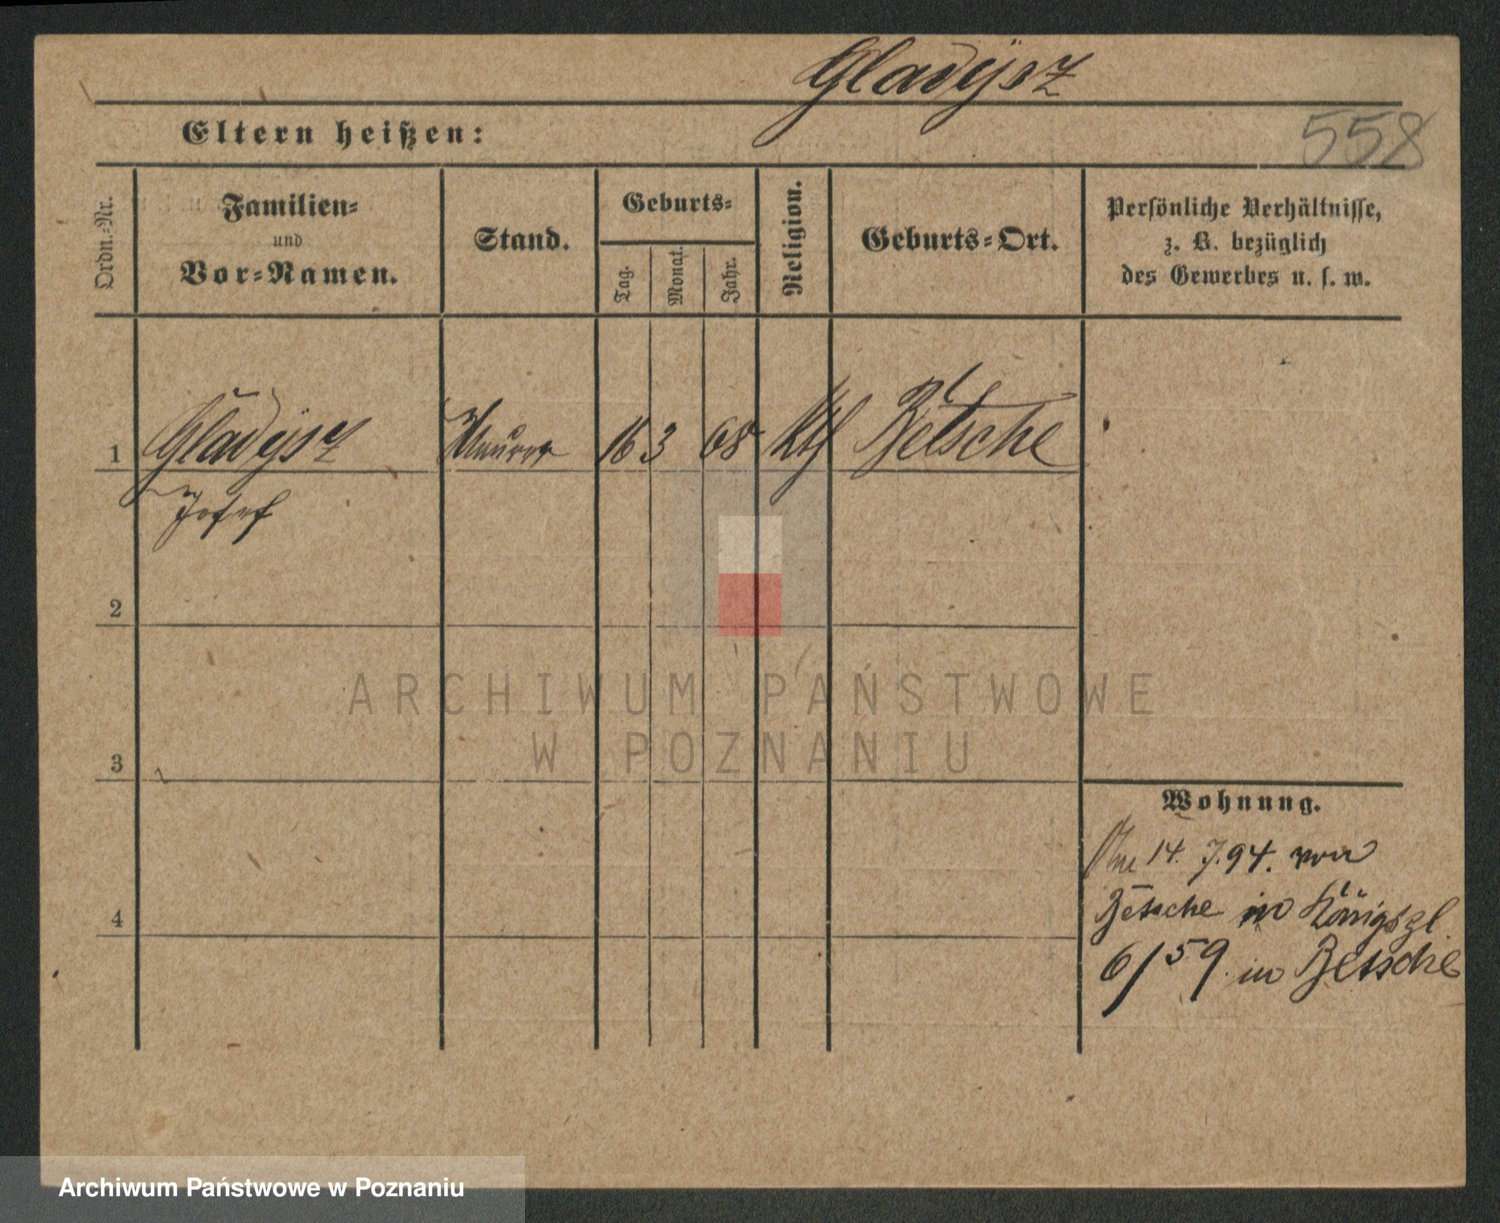 Gladysz
558
Eltern heißen:
Ordn.-Nr.
Familien-
und
Vor-Namen.
Stand.
Geburts-
Tag.
Monat.
Jahr.
Religion.
Geburts-Ort.
Persönliche Verhältnisse,
z. B. bezüglich
des Gewerbes u. s. w.
1 Gladysz Maurer 16 3 68 kth Betsche
Josef
2
3
4
Wohnung.
14. 7. 94. von
Betsche in Königspl.
6/59. in Betsche
ARCHIWUM PAŃSTWOWE
W POZNANIU
Archiwum Państwowe w Poznaniu